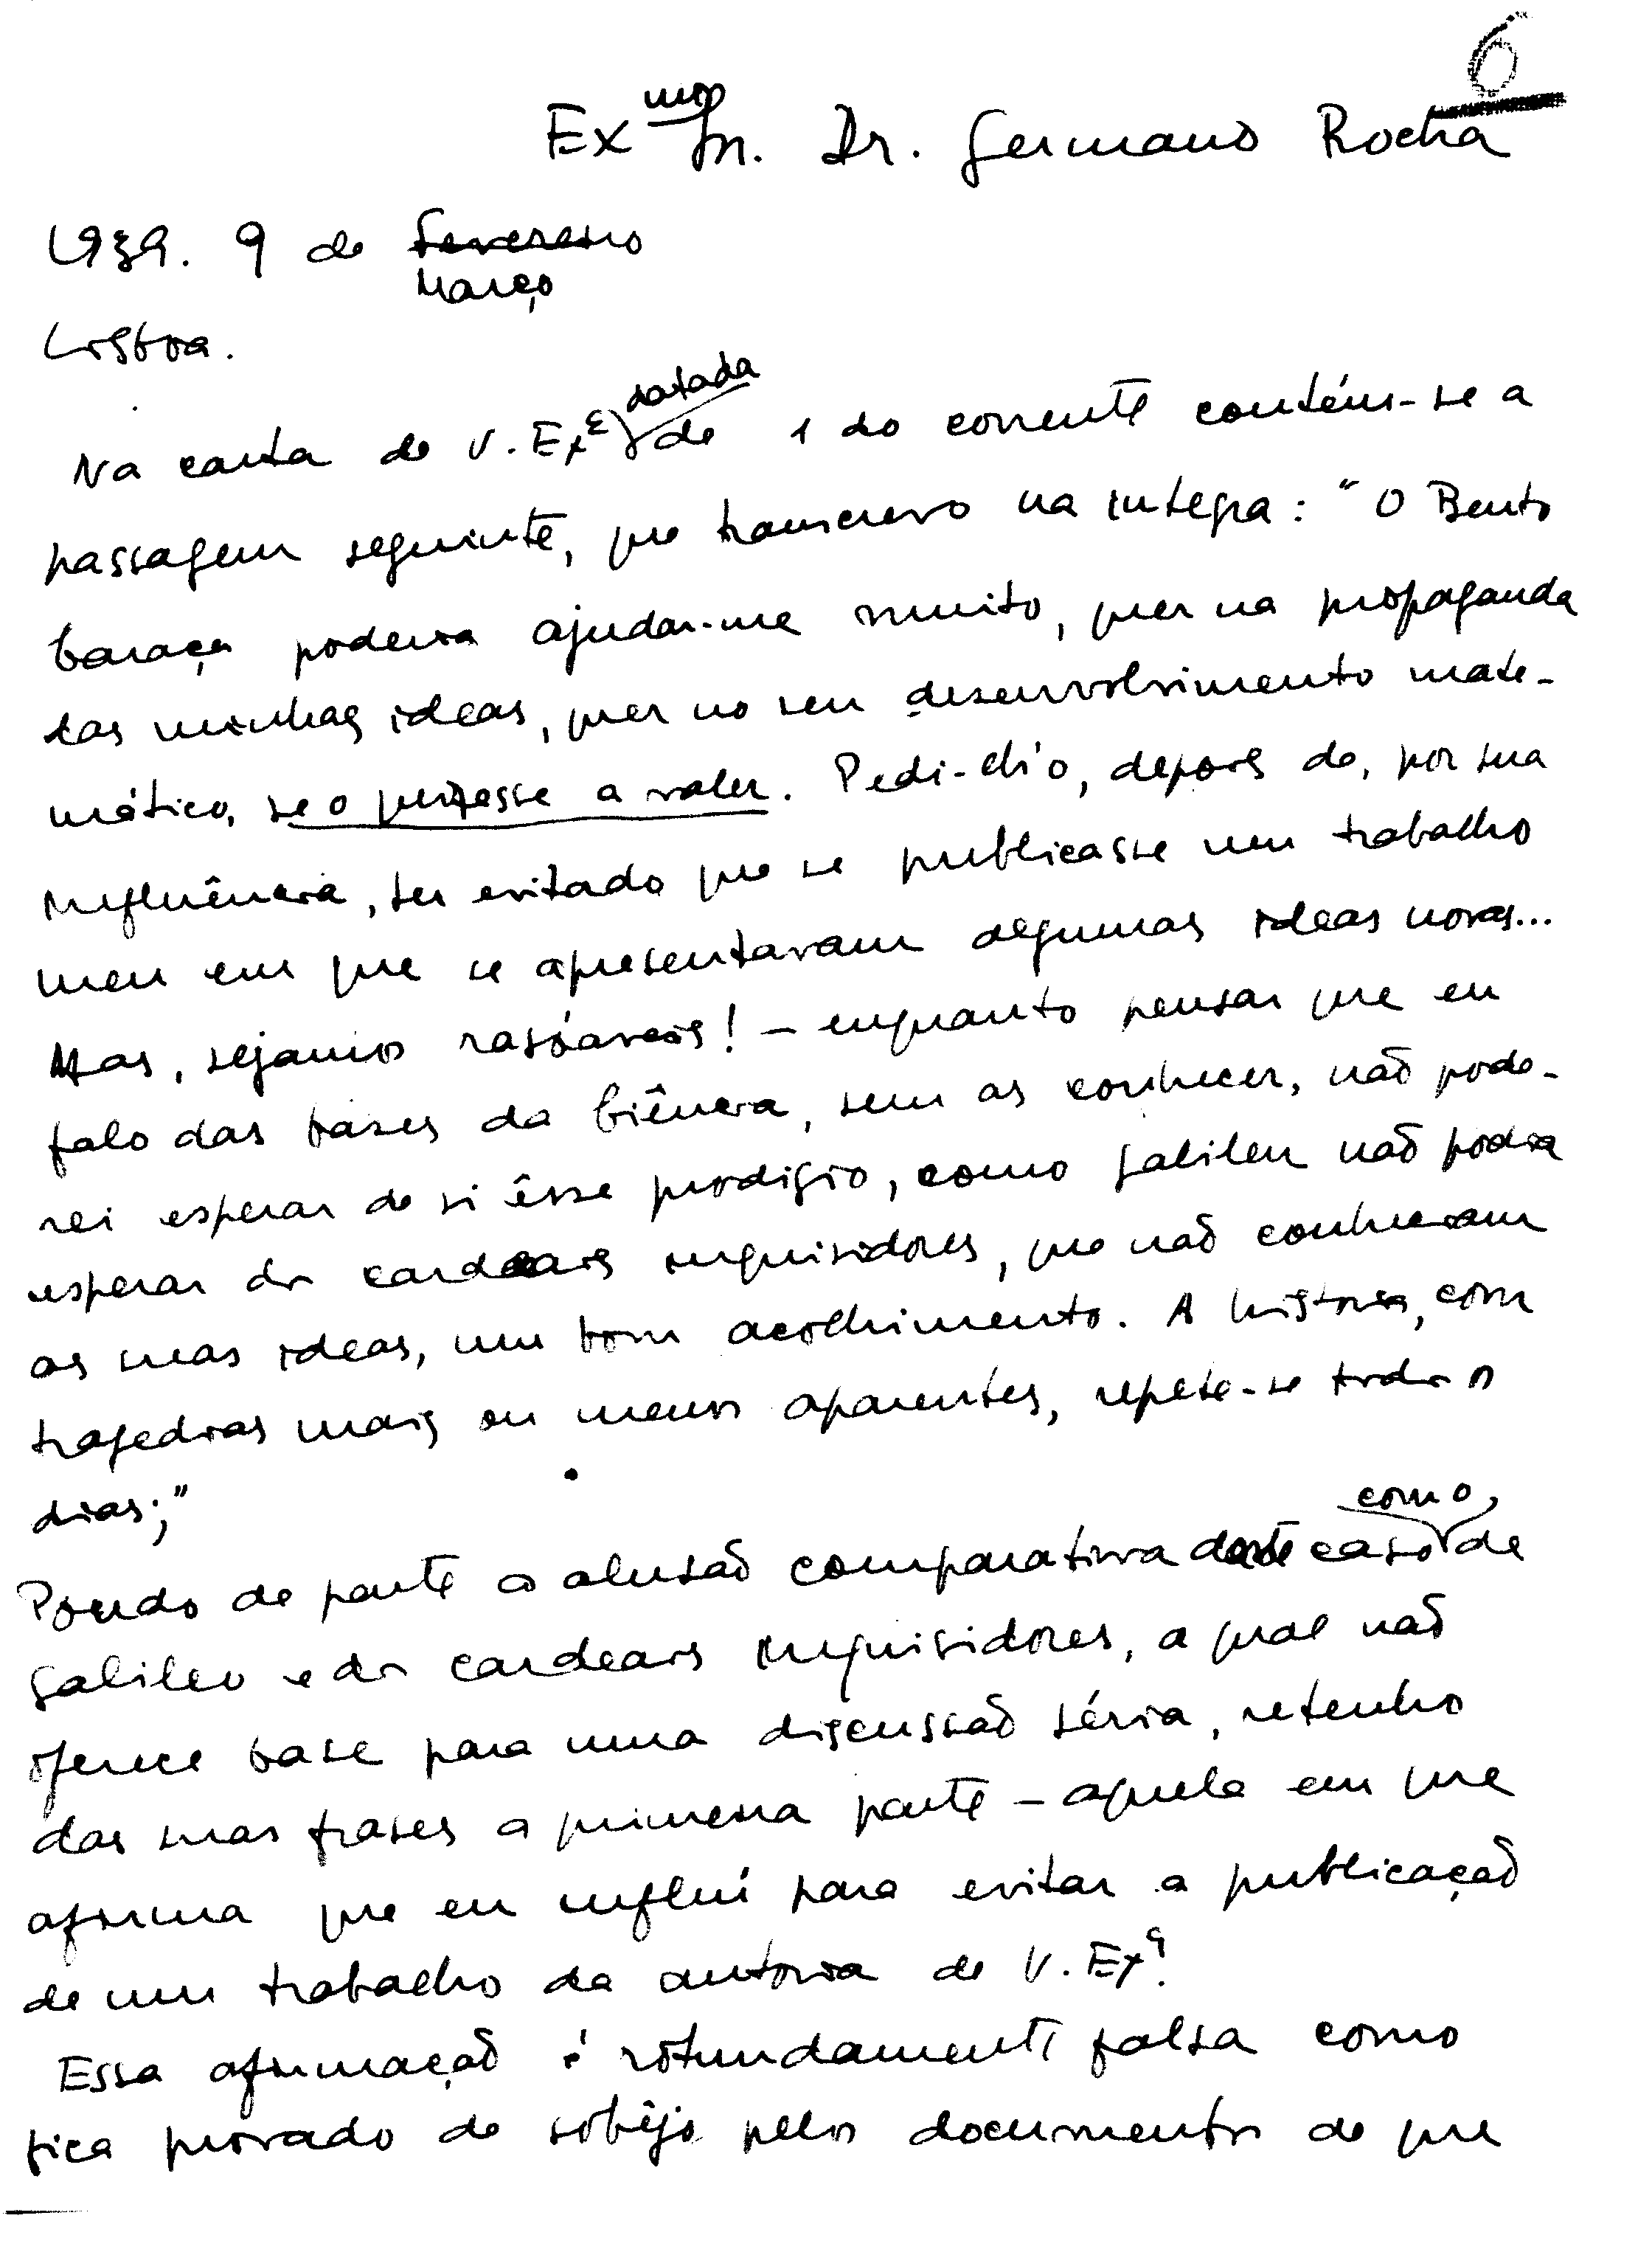 6
Ex.mo Sr. Dr. Germano Rocha
1939. 9 de Fevereiro
Março
Lisboa.
datada
Na carta de V. Exª de 1 do corrente contém-se a
passagem seguinte, que transcrevo na integra: "O Bento
Caraça poderia ajudar-me muito, quer na propaganda
das minhas ideas, quer no seu desenvolvimento mate-
mático, se o quizesse a valer. Pedi-lh'o, depois de, por sua
influência, ter evitado que se publicasse um trabalho
meu em que se apresentavam algumas ideas novas...
Mas, sejamos rasóaveis! - enquanto pensar que eu
falo das bases da Ciência, sem as conhecer, não pode-
rei esperar de si êsse prodigio, como Galileu não podia
esperar dos cardeais inquisidores, que não conheciam
as suas ideas, um bom acolhimento. A história, com
tragedias mais ou menos aparentes, repete-se todos os
dias;"
como
Pondo de parte a alusão comparativa deste caso de
Galileo e dos cardeais inquisidores, a qual não
oferece base para uma discussão séria, retenho
das suas frases a primeira parte - aquela em que
afirma que eu influí para evitar a publicação
de um trabalho da autoria de V. Exª.
Essa afirmação é rotundamente falsa como
fica provado de sobêjo pelos documentos de que